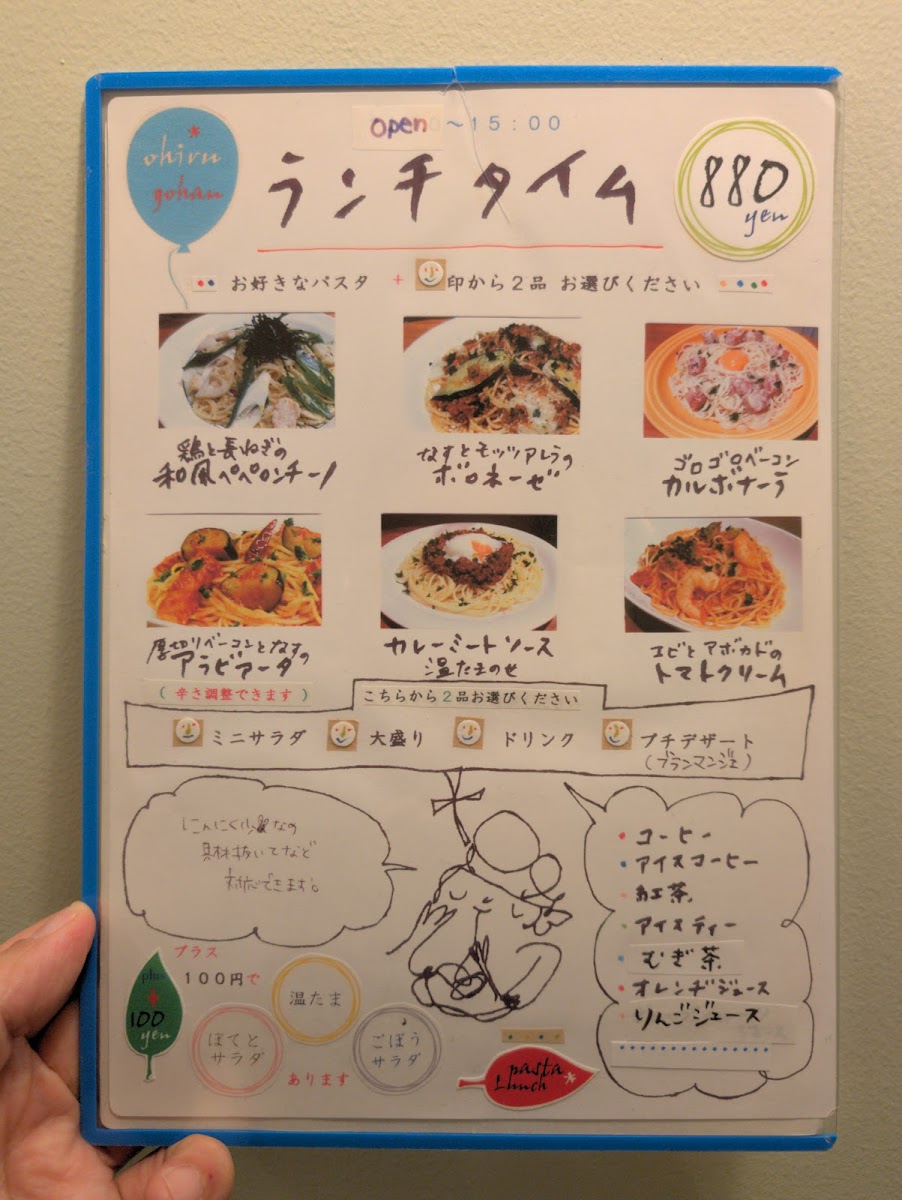 open ～15:00
ohiru
gohan
ランチタイム
880
yen
お好きなパスタ + 印から2品 お選びください
鶏と長ねぎの
和風ペペロンチーノ
なすとモッツアレラの
ボロネーゼ
ゴロゴロベーコン
カルボナーラ
厚切りベーコンとなすの
アラビアータ
(辛さ調整できます)
カレーミートソース
温たまのせ
エビとアボカドの
トマトクリーム
こちらから2品お選びください
ミニサラダ 大盛り ドリンク プチデザート
(ブランマンジェ)
にんにく少なめ
具材抜いてなど
対応できます。
コーヒー
アイスコーヒー
紅茶
アイスティー
むぎ茶
オレンヂジュース
りんごジュース
プラス
100円で
plus
+
100
yen
温たま
ぽてと
サラダ
ごぼう
サラダ
あります
pasta
Lunch